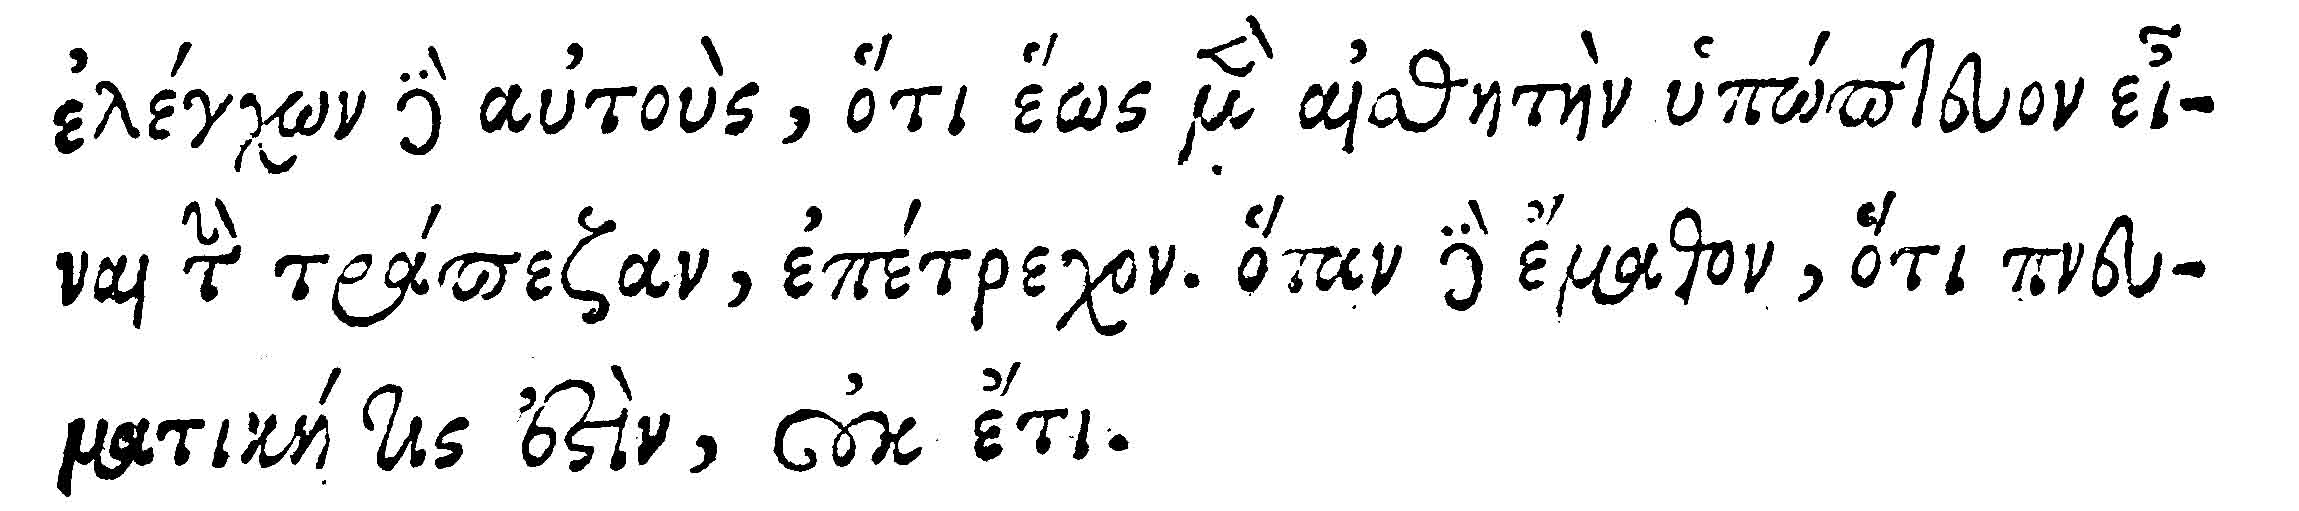 ἐλέγχων δὲ αὐτοὺς, ὅτι ἕως μὲν αἰσθητὴν ὑπώπτευον εἶ-
ναι τὴν τράπεζαν, ἐπέτρεχον. ὅταν δὲ ἔμαθον, ὅτι πνευ-
ματική τις ἐστὶν, οὐκ ἔτι.